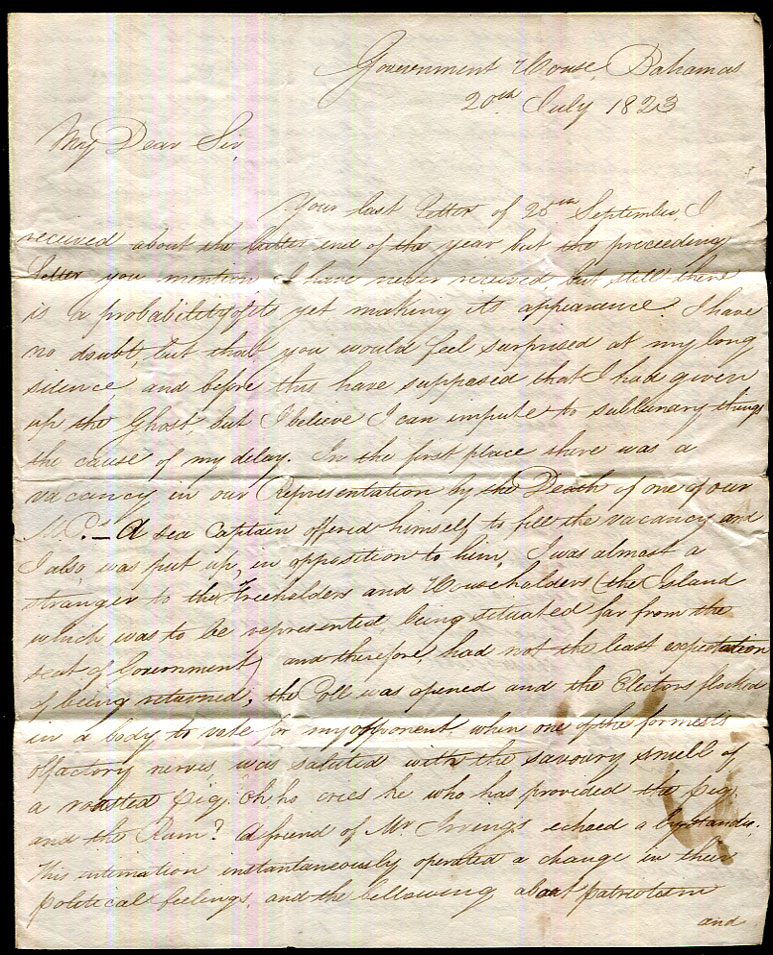 Government House, Bahamas
20th July 1823
My Dear Sir,
Your last Letter of 20th September, I
received about the latter end of the year but the preceeding
Letter you mention I have never received, but still there
is a probability of it yet making its appearance. I have
no doubt, but that you would feel surprised at my long
silence, and before this have supposed that I had given
up the Ghost, but I believe I can impute to sublunary things
the cause of my delay. In the first place there was a
vacancy in our Representation by the Death of one of our
M.P.s – A sea Captain offered himself to fill the vacancy and
I also was put up, in opposition to him, I was almost a
stranger to the Freeholders and Householders (the Island
which was to be represented, being situated far from the
seat of Government) and therefore, had not the least expectation
of being returned; the Poll was opened and the Electors flocked
in a body to vote for my opponent when one of the formests
olfactory nerves, was saluted with the savoury smell of
a roasted Pig. Oh, ho cries he who has provided the Pig,
and the Rum? A friend of Mr Irvings echoed a bystander.
This intimation instantaneously operated a change in their
political feelings, and the bellowing about patriotism
and